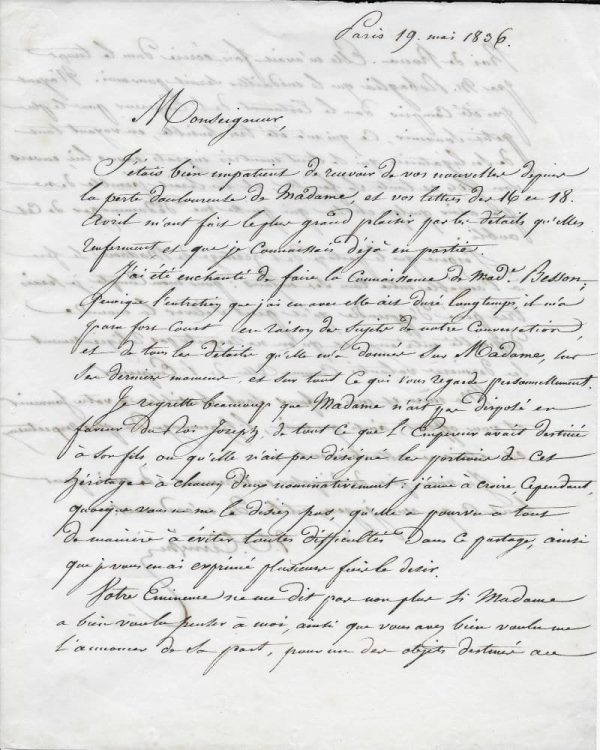 Paris 19. mai 1836.
Monseigneur,
J'étais bien impatient de recevoir de vos nouvelles depuis
la perte douloureuse de Madame, et vos lettres des 16 et 18.
Avril m'ont fait le plus grand plaisir par les détails qu'elles
renferment et que je connaissais déjà en partie.
J'ai été enchanté de faire la connaissance de Mad.e Besson;
quoique l'entretien que j'ai eu avec elle ait duré longtemps, il m'a
paru fort court en raison du sujet de notre conversation,
et de tous les détails qu'elle m'a donnés sur Madame, sur
ses derniers momens, et sur tout ce qui vous regarde personnellement.
Je regrette beaucoup que Madame n'ait pas disposé en
faveur du Roi Joseph, de tout ce que l'Empereur avait destiné
à son fils ou qu'elle n'ait pas désigné les portions de cet
héritage à chacun d'eux nominativement: j'aime à croire, cependant,
quoique vous ne me le disiez pas, qu'elle a pourvu à tout
de manière à éviter toutes difficultés dans ce partage, ainsi
que je vous en ai exprimé plusieurs fois le désir.
Votre Eminence ne me dit pas non plus si Madame
a bien voulu penser à moi, ainsi que vous avez bien voulu me
l'annoncer de sa part, pour un des objets destinés au